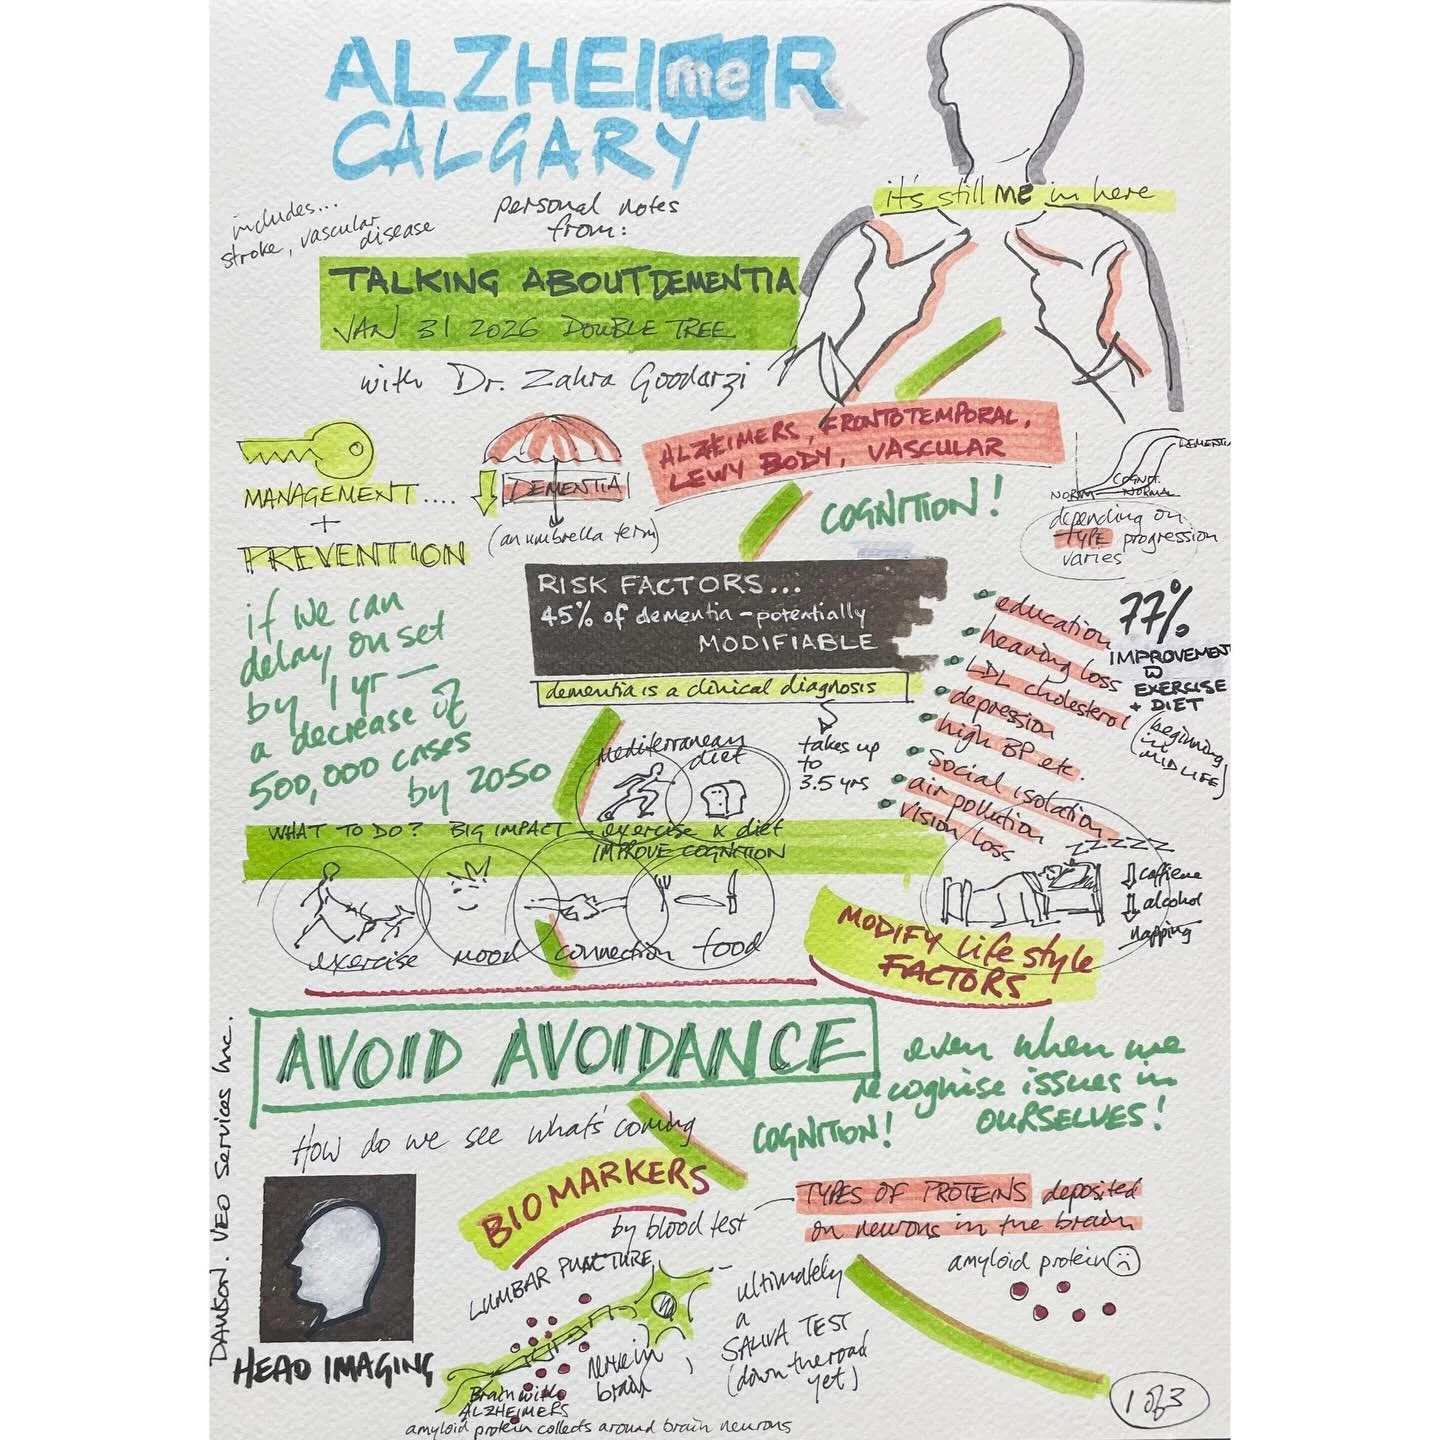 ALZHEImeR
CALGARY
it's still ME in here
includes...
stroke, vascular
disease
personal notes
from:
TALKING ABOUT DEMENTIA
JAN 31 2026 DOUBLE TREE
with Dr. Zahra Goodarzi
MANAGEMENT....
+
PREVENTION
DEMENTIA
(an umbrella term)
ALZHEIMERS, FRONTOTEMPORAL,
LEWY BODY, VASCULAR
COGNITION!
DEMENTIA
COGNIT.
NORM
NORMAL
depending on
TYPE progression
varies
if we can
delay onset
by 1 yr —
a decrease of
500,000 cases
by 2050
RISK FACTORS...
45% of dementia - potentially
MODIFIABLE
dementia is a clinical diagnosis
takes up
to
3.5 yrs
• education
• hearing loss
• LDL cholesterol
• depression
• high BP etc.
• Social isolation
• air pollution
• vision loss
77%
IMPROVEMENT
EXERCISE
+ DIET
(beginning
in
MIDLIFE)
Mediterranean
diet
WHAT TO DO? BIG IMPACT - exercise x diet
IMPROVE COGNITION
exercise
mood
connection
food
zzzzz
↓ caffiene
↓ alcohol
napping
MODIFY life style
FACTORS
AVOID AVOIDANCE
even when we
recognise issues in
OURSELVES!
COGNITION!
How do we see what's coming
BIOMARKERS
by blood test
TYPES OF PROTEINS deposited
on neurons in the brain
amyloid protein
LUMBAR PUNCTURE
ultimately
a
SALIVA TEST
(down the road
yet)
HEAD IMAGING
nerve in
brain
Brain with
ALZHEIMERS
amyloid protein collects around brain neurons
1 of 3
DAWSON. VEO Services Inc.